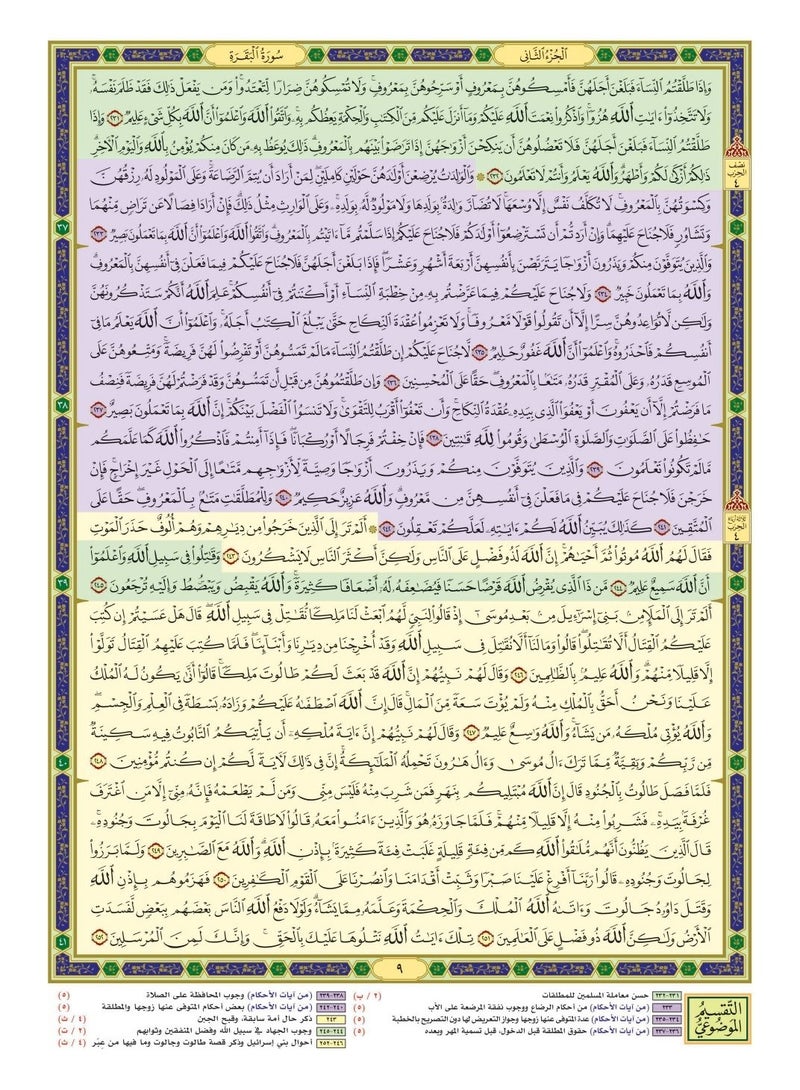 الجُزْءُ الثَّانِى
سُورَةُ البَقَرَةِ
وَإِذَا طَلَّقْتُمُ ٱلنِّسَآءَ فَبَلَغْنَ أَجَلَهُنَّ فَأَمْسِكُوهُنَّ بِمَعْرُوفٍ أَوْ سَرِّحُوهُنَّ بِمَعْرُوفٍ ۚ وَلَا تُمْسِكُوهُنَّ ضِرَارًا لِّتَعْتَدُوا۟ ۚ وَمَن يَفْعَلْ ذَٰلِكَ فَقَدْ ظَلَمَ نَفْسَهُۥ ۚ
وَلَا تَتَّخِذُوٓا۟ ءَايَٰتِ ٱللَّهِ هُزُوًا ۚ وَٱذْكُرُوا۟ نِعْمَتَ ٱللَّهِ عَلَيْكُمْ وَمَآ أَنزَلَ عَلَيْكُم مِّنَ ٱلْكِتَٰبِ وَٱلْحِكْمَةِ يَعِظُكُم بِهِۦ ۚ وَٱتَّقُوا۟ ٱللَّهَ وَٱعْلَمُوٓا۟ أَنَّ ٱللَّهَ بِكُلِّ شَىْءٍ عَلِيمٌ ٢٣١ وَإِذَا
طَلَّقْتُمُ ٱلنِّسَآءَ فَبَلَغْنَ أَجَلَهُنَّ فَلَا تَعْضُلُوهُنَّ أَن يَنكِحْنَ أَزْوَٰجَهُنَّ إِذَا تَرَٰضَوْا۟ بَيْنَهُم بِٱلْمَعْرُوفِ ۗ ذَٰلِكَ يُوعَظُ بِهِۦ مَن كَانَ مِنكُمْ يُؤْمِنُ بِٱللَّهِ وَٱلْيَوْمِ ٱلْءَاخِرِ ۗ
ذَٰلِكُمْ أَزْكَىٰ لَكُمْ وَأَطْهَرُ ۗ وَٱللَّهُ يَعْلَمُ وَأَنتُمْ لَا تَعْلَمُونَ ٢٣٢ ۞ وَٱلْوَٰلِدَٰتُ يُرْضِعْنَ أَوْلَٰدَهُنَّ حَوْلَيْنِ كَامِلَيْنِ ۖ لِمَنْ أَرَادَ أَن يُتِمَّ ٱلرَّضَاعَةَ ۚ وَعَلَى ٱلْمَوْلُودِ لَهُۥ رِزْقُهُنَّ
وَكِسْوَتُهُنَّ بِٱلْمَعْرُوفِ ۚ لَا تُكَلَّفُ نَفْسٌ إِلَّا وُسْعَهَا ۚ لَا تُضَآرَّ وَٰلِدَةٌۢ بِوَلَدِهَا وَلَا مَوْلُودٌ لَّهُۥ بِوَلَدِهِۦ ۚ وَعَلَى ٱلْوَارِثِ مِثْلُ ذَٰلِكَ ۗ فَإِنْ أَرَادَا فِصَالًا عَن تَرَاضٍ مِّنْهُمَا
وَتَشَاوُرٍ فَلَا جُنَاحَ عَلَيْهِمَا ۗ وَإِنْ أَرَدتُّمْ أَن تَسْتَرْضِعُوٓا۟ أَوْلَٰدَكُمْ فَلَا جُنَاحَ عَلَيْكُمْ إِذَا سَلَّمْتُم مَّآ ءَاتَيْتُم بِٱلْمَعْرُوفِ ۗ وَٱتَّقُوا۟ ٱللَّهَ وَٱعْلَمُوٓا۟ أَنَّ ٱللَّهَ بِمَا تَعْمَلُونَ بَصِيرٌ ٢٣٣
وَٱلَّذِينَ يُتَوَفَّوْنَ مِنكُمْ وَيَذَرُونَ أَزْوَٰجًا يَتَرَبَّصْنَ بِأَنفُسِهِنَّ أَرْبَعَةَ أَشْهُرٍ وَعَشْرًا ۖ فَإِذَا بَلَغْنَ أَجَلَهُنَّ فَلَا جُنَاحَ عَلَيْكُمْ فِيمَا فَعَلْنَ فِىٓ أَنفُسِهِنَّ بِٱلْمَعْرُوفِ ۗ
وَٱللَّهُ بِمَا تَعْمَلُونَ خَبِيرٌ ٢٣٤ وَلَا جُنَاحَ عَلَيْكُمْ فِيمَا عَرَّضْتُم بِهِۦ مِنْ خِطْبَةِ ٱلنِّسَآءِ أَوْ أَكْنَنتُمْ فِىٓ أَنفُسِكُمْ ۚ عَلِمَ ٱللَّهُ أَنَّكُمْ سَتَذْكُرُونَهُنَّ
وَلَٰكِن لَّا تُوَاعِدُوهُنَّ سِرًّا إِلَّآ أَن تَقُولُوا۟ قَوْلًا مَّعْرُوفًا ۚ وَلَا تَعْزِمُوا۟ عُقْدَةَ ٱلنِّكَاحِ حَتَّىٰ يَبْلُغَ ٱلْكِتَٰبُ أَجَلَهُۥ ۚ وَٱعْلَمُوٓا۟ أَنَّ ٱللَّهَ يَعْلَمُ مَا فِىٓ
أَنفُسِكُمْ فَٱحْذَرُوهُ ۚ وَٱعْلَمُوٓا۟ أَنَّ ٱللَّهَ غَفُورٌ حَلِيمٌ ٢٣٥ لَّا جُنَاحَ عَلَيْكُمْ إِن طَلَّقْتُمُ ٱلنِّسَآءَ مَا لَمْ تَمَسُّوهُنَّ أَوْ تَفْرِضُوا۟ لَهُنَّ فَرِيضَةً ۚ وَمَتِّعُوهُنَّ عَلَى
ٱلْمُوسِعِ قَدَرُهُۥ وَعَلَى ٱلْمُقْتِرِ قَدَرُهُۥ مَتَٰعًۢا بِٱلْمَعْرُوفِ ۖ حَقًّا عَلَى ٱلْمُحْسِنِينَ ٢٣٦ وَإِن طَلَّقْتُمُوهُنَّ مِن قَبْلِ أَن تَمَسُّوهُنَّ وَقَدْ فَرَضْتُمْ لَهُنَّ فَرِيضَةً فَنِصْفُ
مَا فَرَضْتُمْ إِلَّآ أَن يَعْفُونَ أَوْ يَعْفُوَا۟ ٱلَّذِى بِيَدِهِۦ عُقْدَةُ ٱلنِّكَاحِ ۚ وَأَن تَعْفُوٓا۟ أَقْرَبُ لِلتَّقْوَىٰ ۚ وَلَا تَنسَوُا۟ ٱلْفَضْلَ بَيْنَكُمْ ۚ إِنَّ ٱللَّهَ بِمَا تَعْمَلُونَ بَصِيرٌ ٢٣٧
حَٰفِظُوا۟ عَلَى ٱلصَّلَوَٰتِ وَٱلصَّلَوٰةِ ٱلْوُسْطَىٰ وَقُومُوا۟ لِلَّهِ قَٰنِتِينَ ٢٣٨ فَإِنْ خِفْتُمْ فَرِجَالًا أَوْ رُكْبَانًا ۖ فَإِذَآ أَمِنتُمْ فَٱذْكُرُوا۟ ٱللَّهَ كَمَا عَلَّمَكُم
مَّا لَمْ تَكُونُوا۟ تَعْلَمُونَ ٢٣٩ وَٱلَّذِينَ يُتَوَفَّوْنَ مِنكُمْ وَيَذَرُونَ أَزْوَٰجًا وَصِيَّةً لِّأَزْوَٰجِهِم مَّتَٰعًا إِلَى ٱلْحَوْلِ غَيْرَ إِخْرَاجٍ ۚ فَإِنْ
خَرَجْنَ فَلَا جُنَاحَ عَلَيْكُمْ فِى مَا فَعَلْنَ فِىٓ أَنفُسِهِنَّ مِن مَّعْرُوفٍ ۗ وَٱللَّهُ عَزِيزٌ حَكِيمٌ ٢٤٠ وَلِلْمُطَلَّقَٰتِ مَتَٰعٌۢ بِٱلْمَعْرُوفِ ۖ حَقًّا عَلَى
ٱلْمُتَّقِينَ ٢٤١ كَذَٰلِكَ يُبَيِّنُ ٱللَّهُ لَكُمْ ءَايَٰتِهِۦ لَعَلَّكُمْ تَعْقِلُونَ ٢٤٢ ۞ أَلَمْ تَرَ إِلَى ٱلَّذِينَ خَرَجُوا۟ مِن دِيَٰرِهِمْ وَهُمْ أُلُوفٌ حَذَرَ ٱلْمَوْتِ
فَقَالَ لَهُمُ ٱللَّهُ مُوتُوا۟ ثُمَّ أَحْيَٰهُمْ ۚ إِنَّ ٱللَّهَ لَذُو فَضْلٍ عَلَى ٱلنَّاسِ وَلَٰكِنَّ أَكْثَرَ ٱلنَّاسِ لَا يَشْكُرُونَ ٢٤٣ وَقَٰتِلُوا۟ فِى سَبِيلِ ٱللَّهِ وَٱعْلَمُوٓا۟
أَنَّ ٱللَّهَ سَمِيعٌ عَلِيمٌ ٢٤٤ مَّن ذَا ٱلَّذِى يُقْرِضُ ٱللَّهَ قَرْضًا حَسَنًا فَيُضَٰعِفَهُۥ لَهُۥٓ أَضْعَافًا كَثِيرَةً ۚ وَٱللَّهُ يَقْبِضُ وَيَبْصُۜطُ وَإِلَيْهِ تُرْجَعُونَ ٢٤٥
أَلَمْ تَرَ إِلَى ٱلْمَلَإِ مِنۢ بَنِىٓ إِسْرَٰٓءِيلَ مِنۢ بَعْدِ مُوسَىٰٓ إِذْ قَالُوا۟ لِنَبِىٍّ لَّهُمُ ٱبْعَثْ لَنَا مَلِكًا نُّقَٰتِلْ فِى سَبِيلِ ٱللَّهِ ۖ قَالَ هَلْ عَسَيْتُمْ إِن كُتِبَ
عَلَيْكُمُ ٱلْقِتَالُ أَلَّا تُقَٰتِلُوا۟ ۖ قَالُوا۟ وَمَا لَنَآ أَلَّا نُقَٰتِلَ فِى سَبِيلِ ٱللَّهِ وَقَدْ أُخْرِجْنَا مِن دِيَٰرِنَا وَأَبْنَآئِنَا ۖ فَلَمَّا كُتِبَ عَلَيْهِمُ ٱلْقِتَالُ تَوَلَّوْا۟
إِلَّا قَلِيلًا مِّنْهُمْ ۗ وَٱللَّهُ عَلِيمٌۢ بِٱلظَّٰلِمِينَ ٢٤٦ وَقَالَ لَهُمْ نَبِيُّهُمْ إِنَّ ٱللَّهَ قَدْ بَعَثَ لَكُمْ طَالُوتَ مَلِكًا ۚ قَالُوٓا۟ أَنَّىٰ يَكُونُ لَهُ ٱلْمُلْكُ
عَلَيْنَا وَنَحْنُ أَحَقُّ بِٱلْمُلْكِ مِنْهُ وَلَمْ يُؤْتَ سَعَةً مِّنَ ٱلْمَالِ ۚ قَالَ إِنَّ ٱللَّهَ ٱصْطَفَىٰهُ عَلَيْكُمْ وَزَادَهُۥ بَسْطَةً فِى ٱلْعِلْمِ وَٱلْجِسْمِ ۖ
وَٱللَّهُ يُؤْتِى مُلْكَهُۥ مَن يَشَآءُ ۚ وَٱللَّهُ وَٰسِعٌ عَلِيمٌ ٢٤٧ وَقَالَ لَهُمْ نَبِيُّهُمْ إِنَّ ءَايَةَ مُلْكِهِۦٓ أَن يَأْتِيَكُمُ ٱلتَّابُوتُ فِيهِ سَكِينَةٌ
مِّن رَّبِّكُمْ وَبَقِيَّةٌ مِّمَّا تَرَكَ ءَالُ مُوسَىٰ وَءَالُ هَٰرُونَ تَحْمِلُهُ ٱلْمَلَٰٓئِكَةُ ۚ إِنَّ فِى ذَٰلِكَ لَءَايَةً لَّكُمْ إِن كُنتُم مُّؤْمِنِينَ ٢٤٨
فَلَمَّا فَصَلَ طَالُوتُ بِٱلْجُنُودِ قَالَ إِنَّ ٱللَّهَ مُبْتَلِيكُم بِنَهَرٍ فَمَن شَرِبَ مِنْهُ فَلَيْسَ مِنِّى وَمَن لَّمْ يَطْعَمْهُ فَإِنَّهُۥ مِنِّىٓ إِلَّا مَنِ ٱغْتَرَفَ
غُرْفَةًۢ بِيَدِهِۦ ۚ فَشَرِبُوا۟ مِنْهُ إِلَّا قَلِيلًا مِّنْهُمْ ۚ فَلَمَّا جَاوَزَهُۥ هُوَ وَٱلَّذِينَ ءَامَنُوا۟ مَعَهُۥ قَالُوا۟ لَا طَاقَةَ لَنَا ٱلْيَوْمَ بِجَالُوتَ وَجُنُودِهِۦ ۚ
قَالَ ٱلَّذِينَ يَظُنُّونَ أَنَّهُم مُّلَٰقُوا۟ ٱللَّهِ كَم مِّن فِئَةٍ قَلِيلَةٍ غَلَبَتْ فِئَةً كَثِيرَةًۢ بِإِذْنِ ٱللَّهِ ۗ وَٱللَّهُ مَعَ ٱلصَّٰبِرِينَ ٢٤٩ وَلَمَّا بَرَزُوا۟
لِجَالُوتَ وَجُنُودِهِۦ قَالُوا۟ رَبَّنَآ أَفْرِغْ عَلَيْنَا صَبْرًا وَثَبِّتْ أَقْدَامَنَا وَٱنصُرْنَا عَلَى ٱلْقَوْمِ ٱلْكَٰفِرِينَ ٢٥٠ فَهَزَمُوهُم بِإِذْنِ ٱللَّهِ
وَقَتَلَ دَاوُۥدُ جَالُوتَ وَءَاتَىٰهُ ٱللَّهُ ٱلْمُلْكَ وَٱلْحِكْمَةَ وَعَلَّمَهُۥ مِمَّا يَشَآءُ ۗ وَلَوْلَا دَفْعُ ٱللَّهِ ٱلنَّاسَ بَعْضَهُم بِبَعْضٍ لَّفَسَدَتِ
ٱلْأَرْضُ وَلَٰكِنَّ ٱللَّهَ ذُو فَضْلٍ عَلَى ٱلْعَٰلَمِينَ ٢٥١ تِلْكَ ءَايَٰتُ ٱللَّهِ نَتْلُوهَا عَلَيْكَ بِٱلْحَقِّ ۚ وَإِنَّكَ لَمِنَ ٱلْمُرْسَلِينَ ٢٥٢
نصف الحزب ٤
ثلاثة أرباع الحزب ٤
٣٧
٣٨
٣٩
٤٠
٤١
٩
التقسيم الموضوعي
٢٣١-٢٣٢ حسن معاملة المسلمين للمطلقات (٢ / ب)
٢٣٣ (من آيات الأحكام) من أحكام الرضاع ووجوب نفقة المرضعة على الأب (٥)
٢٣٤-٢٣٥ (من آيات الأحكام) عدة المتوفى عنها زوجها وجواز التعريض لها دون التصريح بالخطبة (٥)
٢٣٦-٢٣٧ (من آيات الأحكام) حقوق المطلقة قبل الدخول، قبل تسمية المهر وبعده (٥)
٢٣٨-٢٣٩ (من آيات الأحكام) وجوب المحافظة على الصلاة (٥)
٢٤٠-٢٤٢ (من آيات الأحكام) بعض أحكام المتوفى عنها زوجها والمطلقة (٥)
٢٤٣ ذكر حال أمة سابقة، وقبح الجبن (٤ / ث)
٢٤٤-٢٤٥ وجوب الجهاد في سبيل الله وفضل المنفقين وثوابهم (٢ / ت)
٢٤٦-٢٥٢ أحوال بني إسرائيل وذكر قصة طالوت وجالوت وما فيها من عِبَر (٤ / ث)